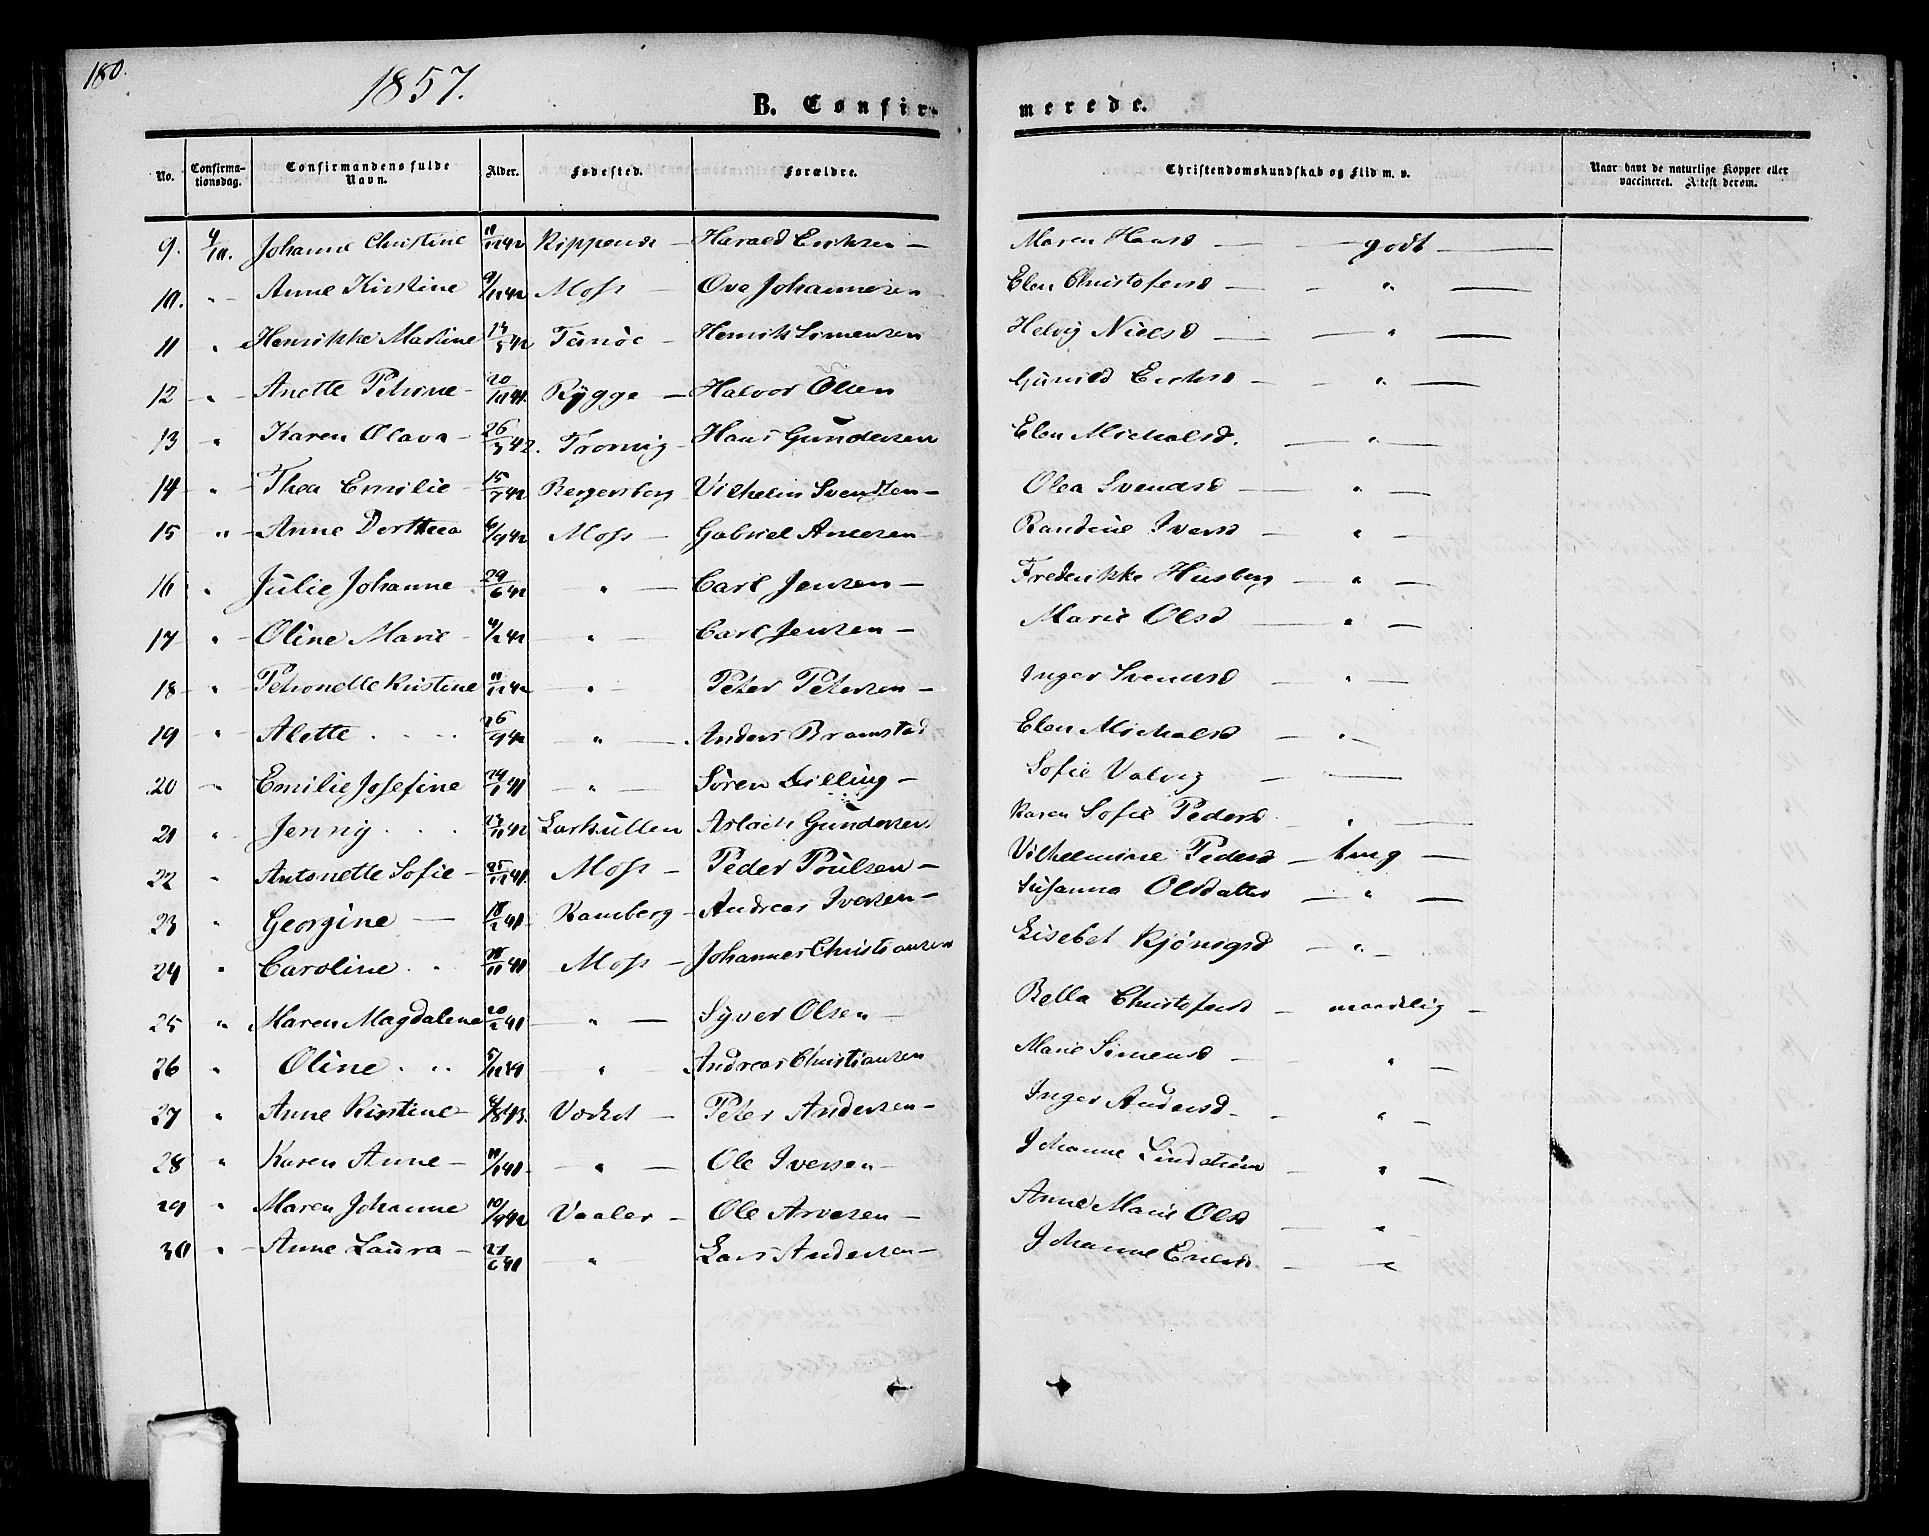 180.
1857.
B. Confir-
merede.
No.
Confirma-
tionsdag.
Confirmandens fulde
Navn.
Alder.
Fødested.
Forældre.
Christendomskundskab og Flid m. v.
Naar havt de naturlige Kopper eller
vaccineret. Attest derom.
9. 4/10. Johanne Christine 11/12 42 Harald Eriksen – Maren Hansd – godt –
10. " Anne Kirstine 9/12 42 Moss – Ove Johannesen Elen Christofersd – " –
11 " Henrikke Martine Henrik Simensen Helvig Nielsd – " –
12 " Anette Petrine – 20/10 41. Rygge – Halvor Olsen Gunild Eriksd – " –
13 " Karen Olava – 26/3 42. Tromvig – Hans Gundersen Elen Michalsd. – " –
14 " Thea Emilie – 15/7 42 Bergersborg Vilhelm Svendsen – Olea Svendsd – " –
15 " Anne Dorthea 6/9 42 Moss – Gabriel Andersen Randine Iversd – " –
16 " Julie Johanne 29/6 42 – " – Carl Jensen – Frederikke Husberg – " –
17 " Oline Marie – 4/2 42 – " – Carl Jensen – Marie Olsd – " –
18 – " Petronelle Kristine 11/12 42 – " – Peter Petersen – Inger Svendsd – " –
19 " Alette 26/9 42 – " – Anders Bramstad Elen Michalsd – " –
20 – Emilie Josefine – " – Søren Dilling – Sofie Valvig – –
21 " Jenny 23/11 42 Larkullen Aslach Gundersen Karen Sofie Pedersd " –
22 " Antonette Sofie – 25/12 41. Moss – Peder Poulsen – Vilhelmine Pedersd – tmg –
23 " Georgine – 18/2 41. Ramberg – Andreas Iversen – Susanna Olsdatter – " –
24 " Caroline. 18/11 41 Moss – Johannes Christiansen Lisebet – " –
25 " Maren Magdalena 20/2 41 – " – Syver Olsen – Bella Christofersd – maadelig –
26 " Oline – " – Andreas Christiansen Marie Simensd – " –
27 " Anne Kirstine – – Peter Andersen – Inger Andersd – " –
28 " Karen Anne – 11/1 41 – " – Ole Iversen – Johanne Lindstrøm – " –
29 " Maren Johanne 10/9 42 Vaaler – Ole Arvesen – Anne Marie Olsd – " –
30 " Anne Laura – 21/6 41 – " – Lars Andersen – Johanne – "